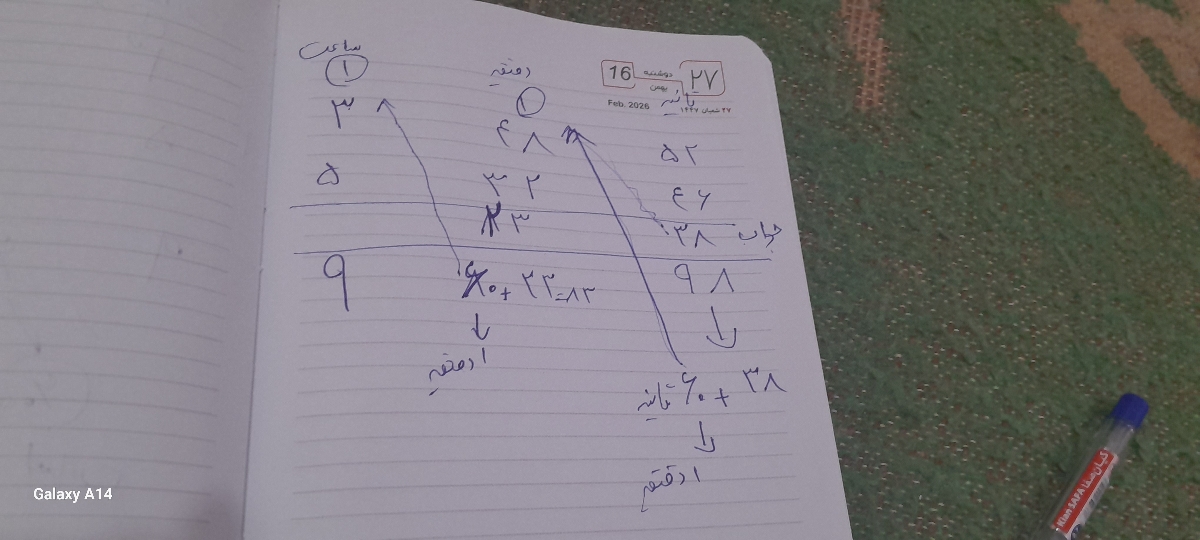 ساعت دقیقه ثانیه
۱ ۱
16 دوشنبه بهمن ۲۷
Feb. 2026 ۲۷ شعبان ۱۴۴۷
۳ ۴۸ ۵۲
۵ ۳۲ ۴۶
۲۳ ۳۸ جواب
۹ ۶۰ + ۲۳ = ۸۳ ۹۸
۱ دقیقه
ثانیه ۶۰ + ۳۸
۱ دقیقه
Kian SAFA
Galaxy A14